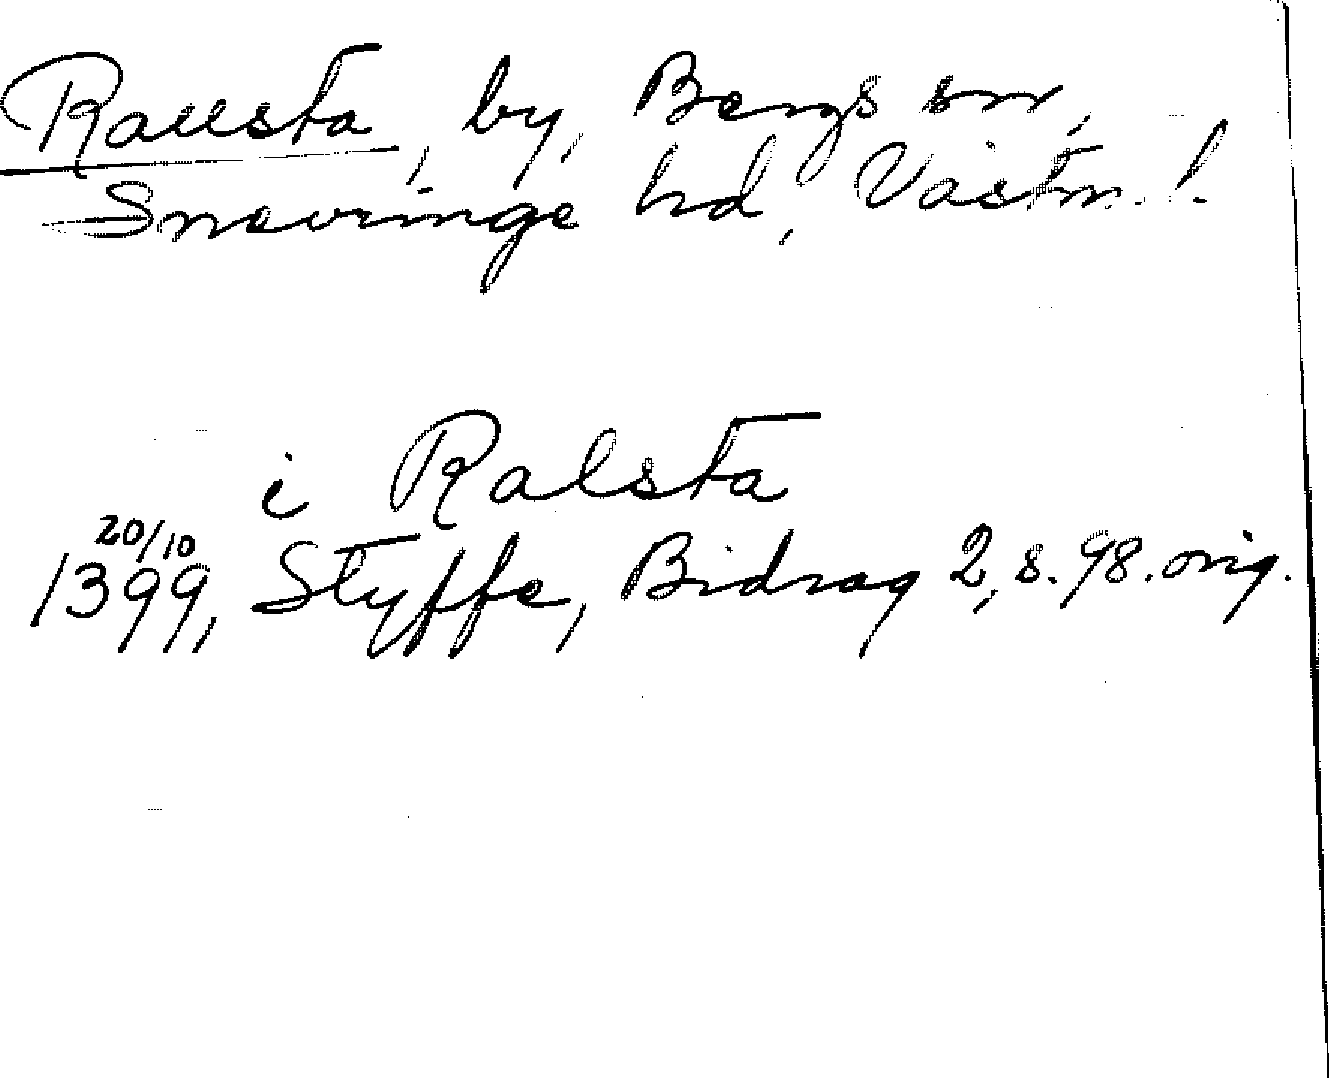 Rallsta, by, Bergs sn,
Snevringe hd, Västm. l.
i Ralsta
20/10
1399, Styffe, Bidrag 2, s. 98. orig.